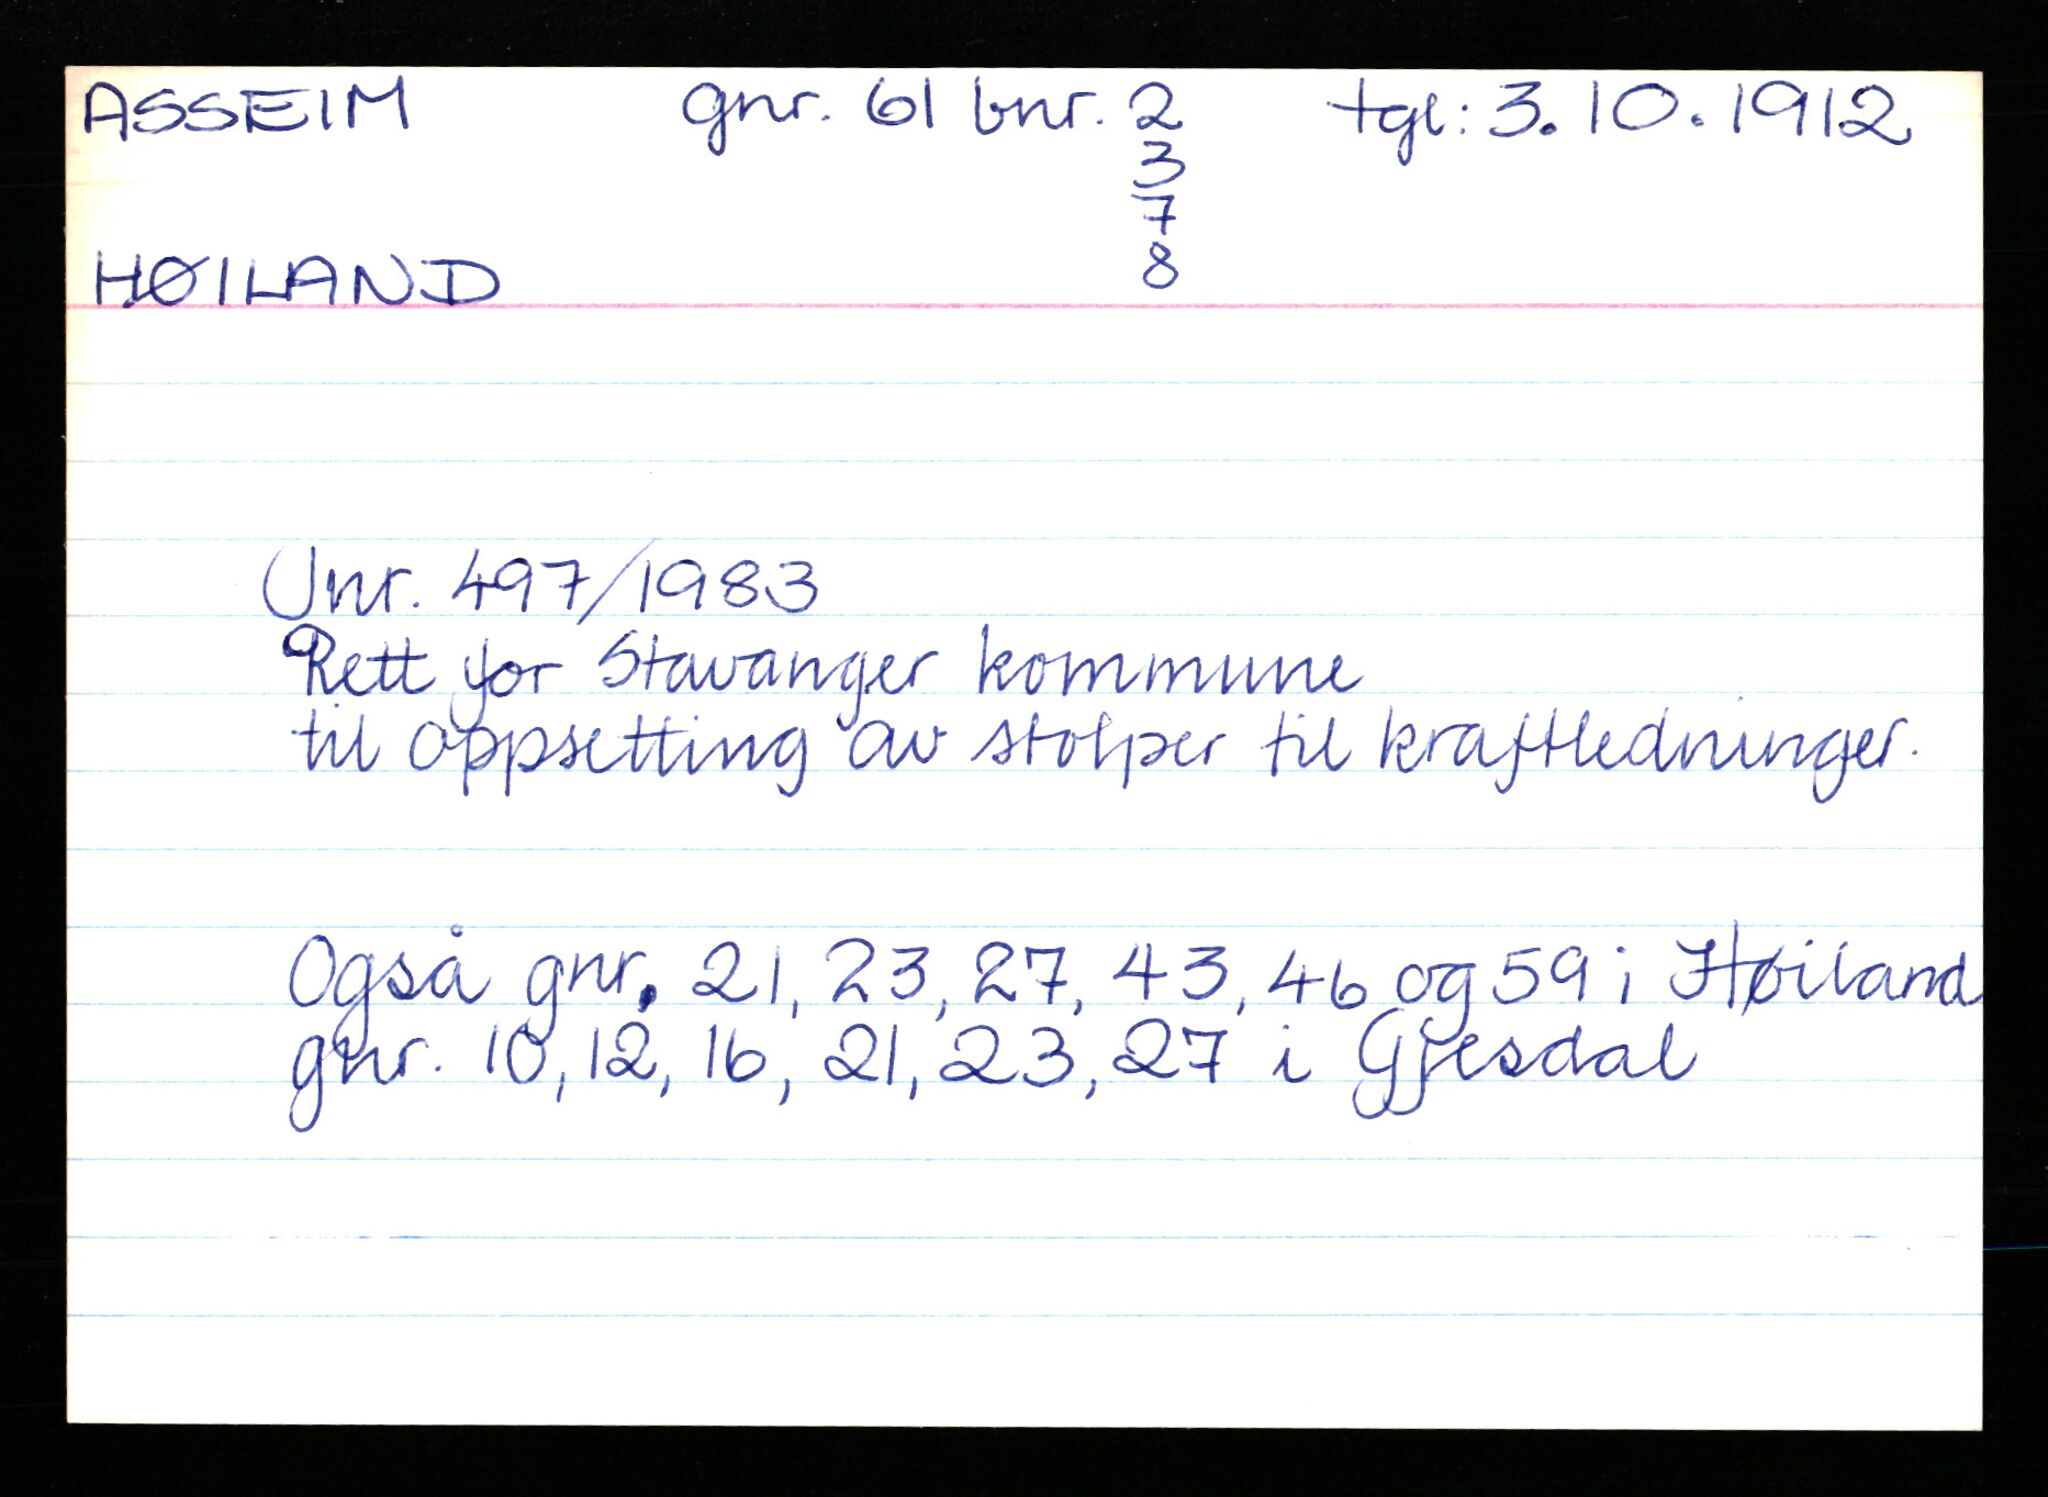 ASSEIM gnr. 61 bnr. 2 tgl: 3.10.1912
3
7
8
HØILAND
Jnr. 497/1983
Rett for Stavanger kommune
til oppsetting av stolper til kraftledninger.
Også gnr. 21, 23, 27, 43, 46 og 59 i Høiland
gnr. 10, 12, 16, 21, 23, 27 i Gjesdal